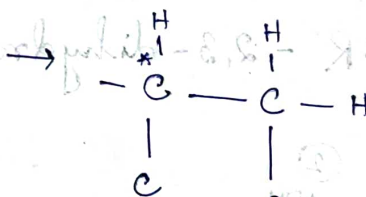 H H
→ *
– C – C – H
C